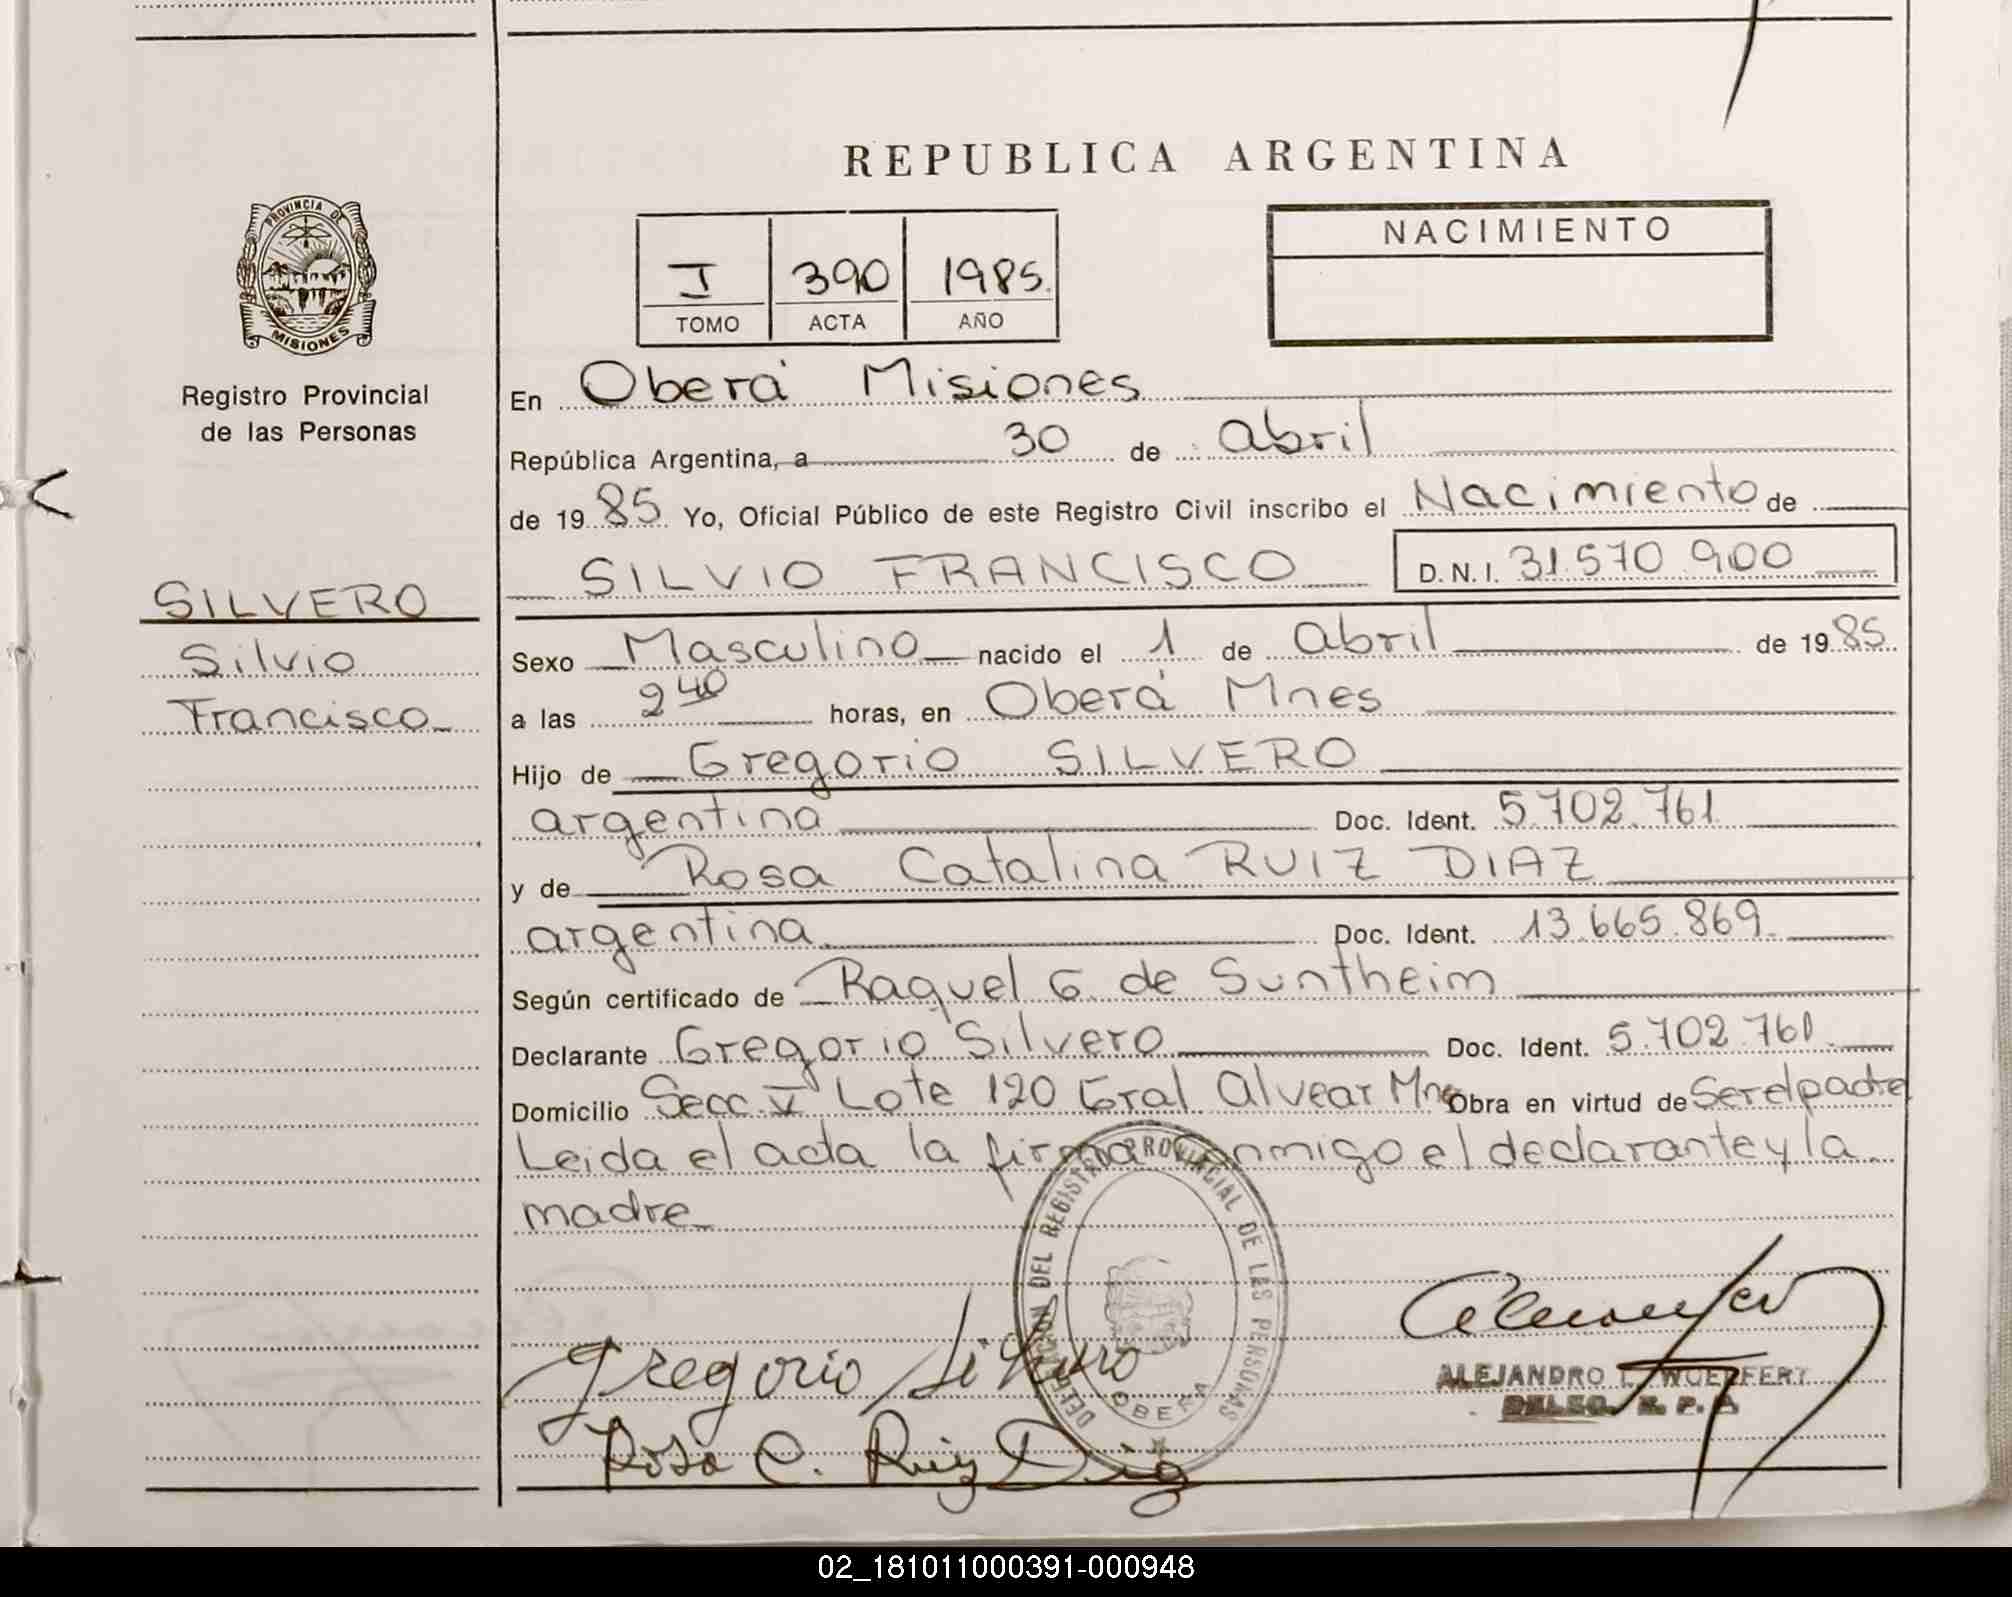 REPUBLICA ARGENTINA
PROVINCIA DE
MISIONES
Registro Provincial
de las Personas
SILVERO
Silvio
Francisco
I 390 1985.
TOMO ACTA AÑO
NACIMIENTO
En Oberá Misiones
República Argentina, a 30 de abril
de 1985 Yo, Oficial Público de este Registro Civil inscribo el Nacimiento de
SILVIO FRANCISCO D.N.I. 31.570.900
Sexo Masculino nacido el 1 de abril de 1985.
a las 2 40 horas, en Oberá Mnes
Hijo de Gregorio SILVERO
argentina Doc. Ident. 5.702.761
y de Rosa Catalina RUIZ DIAZ
argentina Doc. Ident. 13.665.869
Según certificado de Raquel G de Suntheim
Declarante Gregorio Silvero Doc. Ident. 5.702.761
Domicilio Secc. V Lote 120 Gral Alvear Mnes Obra en virtud de Ser el padre
Leida el acta la firma conmigo el declarante y la
madre
DEL REGISTRO PROVINCIAL DE LAS PERSONAS
OBERA
Gregorio Silvero
Rosa C. Ruiz Diaz
ALEJANDRO
02_181011000391-000948